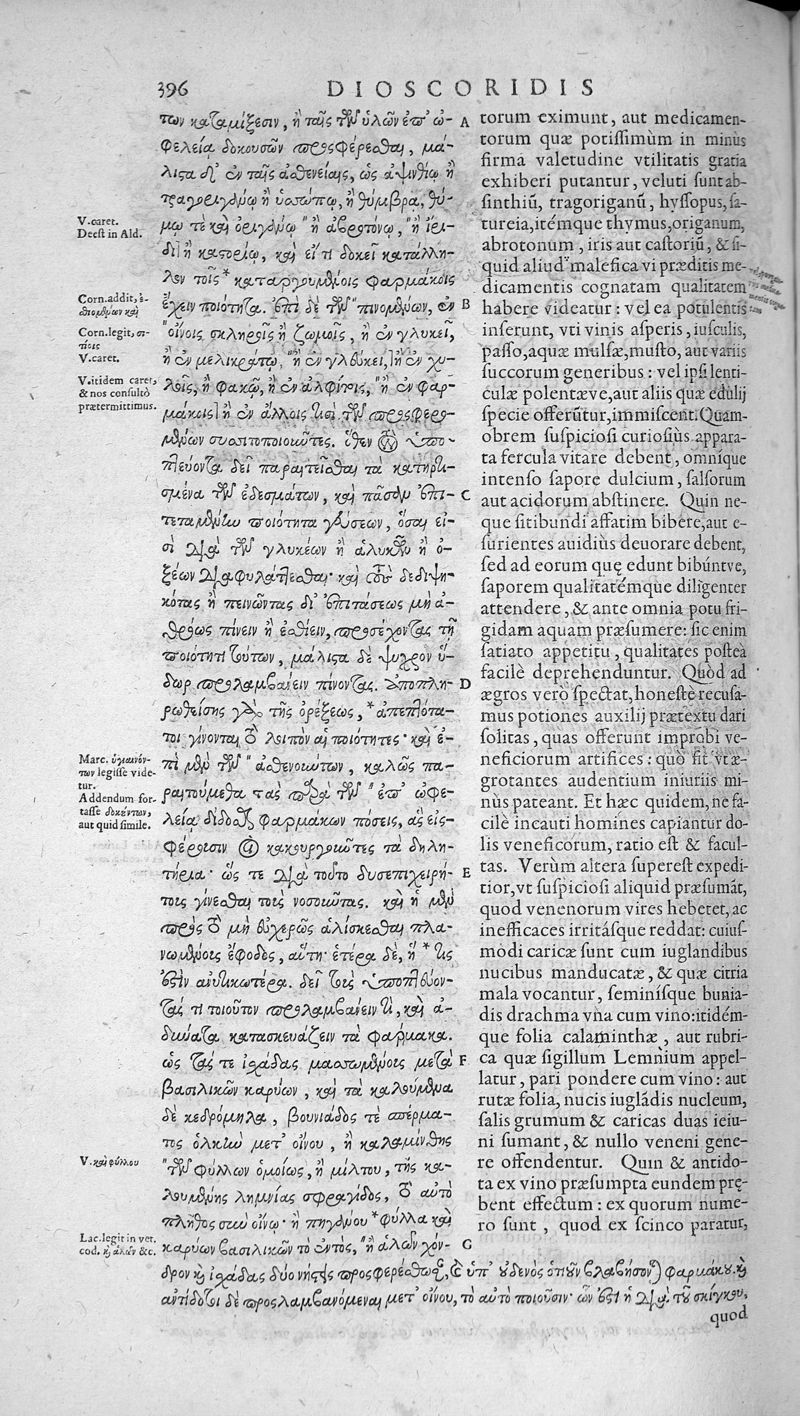 396 DIOSCORIDIS
των καταμίξεσιν, ἢ ταῖς τῶν ὑλῶν ἐπ' ὠ-
φελείᾳ δοκουσῶν προσφέρεσθαι, μά-
λιστα δ' ἐν ταῖς ἀσθενείαις, ὡς ἀψινθίῳ ἢ
τραγοριγάνῳ ἢ ὑσσώπῳ, ἢ θύμβρᾳ, θύ-
μῳ τὲ καὶ ὀριγάνῳ "ἢ ἀβροτόνῳ, "ἢ ἴρι-
δι] ἢ καστορίῳ, καὶ εἴ τι δοκεῖ κατάλλη-
λον τοῖς * καταργουμένοις φαρμάκοις
ἔχειν ποιότητα. ἐπὶ δὲ τῶν "πινομένων, ἐν
"οἴνοις σκληροῖς ἢ ζωμοῖς, ἢ ἐν γλυκεῖ,
ἢ ἐν μελικράτῳ, "ἢ ἐν γλεύκει,] ἢ ἐν χυ-
λοῖς, ἢ φακῷ, ἢ ἐν ἀλφίτοις, "ἢ ἐν φαρ-
μάκοις] ἢ ἐν ἄλλοις τισὶ τῶν προσφερο-
μένων συσιτοποιοῦντες. ὅθεν τοὺς ὑπο-
πτεύοντας δεῖ παραιτεῖσθαι τὰ κατηρτι-
σμένα τῶν ἐδεσμάτων, καὶ πᾶσαν ἐπι-
τεταμένην ποιότητα γεύσεων, ὅσαι εἰ-
σὶ διὰ τῶν γλυκέων ἢ ἁλυκῶν ἢ ὀ-
ξέων διαφυλάττεσθαι· καὶ τοὺς δεδιψη-
κότας ἢ πεινῶντας δι' ἐπιτάσεως μὴ ἀ-
θρόως πίνειν ἢ ἐσθίειν, προσέχοντας τῇ
ποιότητι τούτων, μάλιστα δὲ ψυχρὸν ὕ-
δωρ προλαμβάνειν πίνοντας. ἀποπλη-
ρωθείσης γὰρ τῆς ὀρέξεως, * ἀπεπλότα-
τοι γίνονται τὸ λοιπὸν αἱ ποιότητες· καὶ ἐ-
πὶ μὲν τῶν "ἀσθενούντων, καλῶς πα-
ραιτούμεθα τὰς παρὰ τῶν "ἐπ' ὠφε-
λείᾳ διδόναι φαρμάκων πόσεις, ἃς εἰσ-
φέρουσιν οἱ κακουργοῦντες τὰ δηλη-
τήρια· ὥς τε διὰ τοῦτο δυσεπιχειρή-
τοις γίνεσθαι τοῖς νοσοῦντας. καὶ ἡ μὲν
πρὸς τὸ μὴ εὐχερῶς ἁλίσκεσθαι πλα-
νωμένοις ἔφοδος, αὕτη· ἑτέρα δὲ, ἥ * τις
ἐστὶν ἀνυτικωτέρα. δεῖ τοὺς ὑποπτεύον-
τας τὶ τοιοῦτον προλαμβάνειν τι, καὶ ἀ-
δύνατα κατασκευάζειν τὰ φάρμακα.
ὡς τάς τε ἰσχάδας μασσωμένοις μετὰ
βασιλικῶν καρύων, καὶ τὰ καλούμενα
δὲ κεδρόμηλα, βουνιάδος τὲ σπέρμα-
τος ὁλκὴν μετ' οἴνου, ἢ καλαμίνθης
"τῶν φύλλων ὁμοίως, ἢ μίλτου, τῆς κα-
λουμένης λημνίας σφραγίδος, τὸ αὐτὸ
πλῆθος σὺν οἴνῳ· ἢ πηγάνου * φύλλα καὶ
καρύων βασιλικῶν τὸ ἐντὸς, "ἢ ἁλῶν χόν-
δρον καὶ ἰσχάδας δύο νήστις προσφερέσθω, καὶ ὑπ' οὐδενὸς ὁτιοῦν βλαβήσονται φαρμάκου. καὶ
αἱ ἀντίδοτοι δὲ προσλαμβανόμεναι μετ' οἴνου, τὸ αὐτὸ ποιοῦσιν· ὧν ἐστὶ ἡ διὰ τοῦ σκίγκου,
V. caret.
Deest in Ald.
Corn. addit, ἐ-
διομένων καὶ
Corn. legit, σι-
τίοις
V. caret.
V. itidem caret,
& nos consultò
prætermittimus.
Marc. ὑγιαινόν-
των legisse vide-
tur.
Addendum for-
tasse δοκούντων,
aut quid simile.
V. καὶ φύλλου
Lac. legit in vet.
cod. καὶ ἁλῶν &c.
A
B
C
D
E
F
G
torum eximunt, aut medicamen-
torum quæ potissimùm in minùs
firma valetudine vtilitatis gratia
exhiberi putantur, veluti sunt ab-
sinthiũ, tragoriganũ, hyssopus, sa-
tureia, itémque thymus, origanum,
abrotonum, iris aut castoriũ, & si-
quid aliud malefica vi præditis me-
dicamentis cognatam qualitatem
habere videatur: vel ea potulentis
inferunt, vti vinis asperis, iusculis,
passo, aquæ mulsæ, musto, aut variis
succorum generibus: vel ipsi lenti-
culæ polentæve, aut aliis quæ edulij
specie offerũtur, immiscent. Quam-
obrem suspiciosi curiosiùs appara-
ta fercula vitare debent, omníque
intenso sapore dulcium, salsorum
aut acidorum abstinere. Quin ne-
que sitibundi affatim bibere, aut e-
surientes auidiùs deuorare debent,
sed ad eorum quę edunt bibúntve,
saporem qualitatémque diligenter
attendere, & ante omnia potu fri-
gidam aquam præsumere: sic enim
satiato appetitu, qualitates posteà
facilè deprehenduntur. Quòd ad
ægros verò spectat, honestè recusa-
mus potiones auxilij prætextu dari
solitas, quas offerunt improbi ve-
neficiorum artifices: quò fit vt æ-
grotantes audentium iniuriis mi-
nùs pateant. Et hæc quidem, ne fa-
cilè incauti homines capiantur do-
lis veneficorum, ratio est & facul-
tas. Verùm altera superest expedi-
tior, vt suspiciosi aliquid præsumãt,
quod venenorum vires hebetet, ac
inefficaces irritásque reddat: cuius-
modi caricæ sunt cum iuglandibus
nucibus manducatæ, & quæ citria
mala vocantur, seminísque bunia-
dis drachma vna cum vino: itidém-
que folia calaminthæ, aut rubri-
ca quæ sigillum Lemnium appel-
latur, pari pondere cum vino: aut
rutæ folia, nucis iuglãdis nucleum,
salis grumum & caricas duas ieiu-
ni sumant, & nullo veneni gene-
re offendentur. Quin & antido-
ta ex vino præsumpta eundem prę-
bent effectum: ex quorum nume-
ro sunt, quod ex scinco paratur,
quod